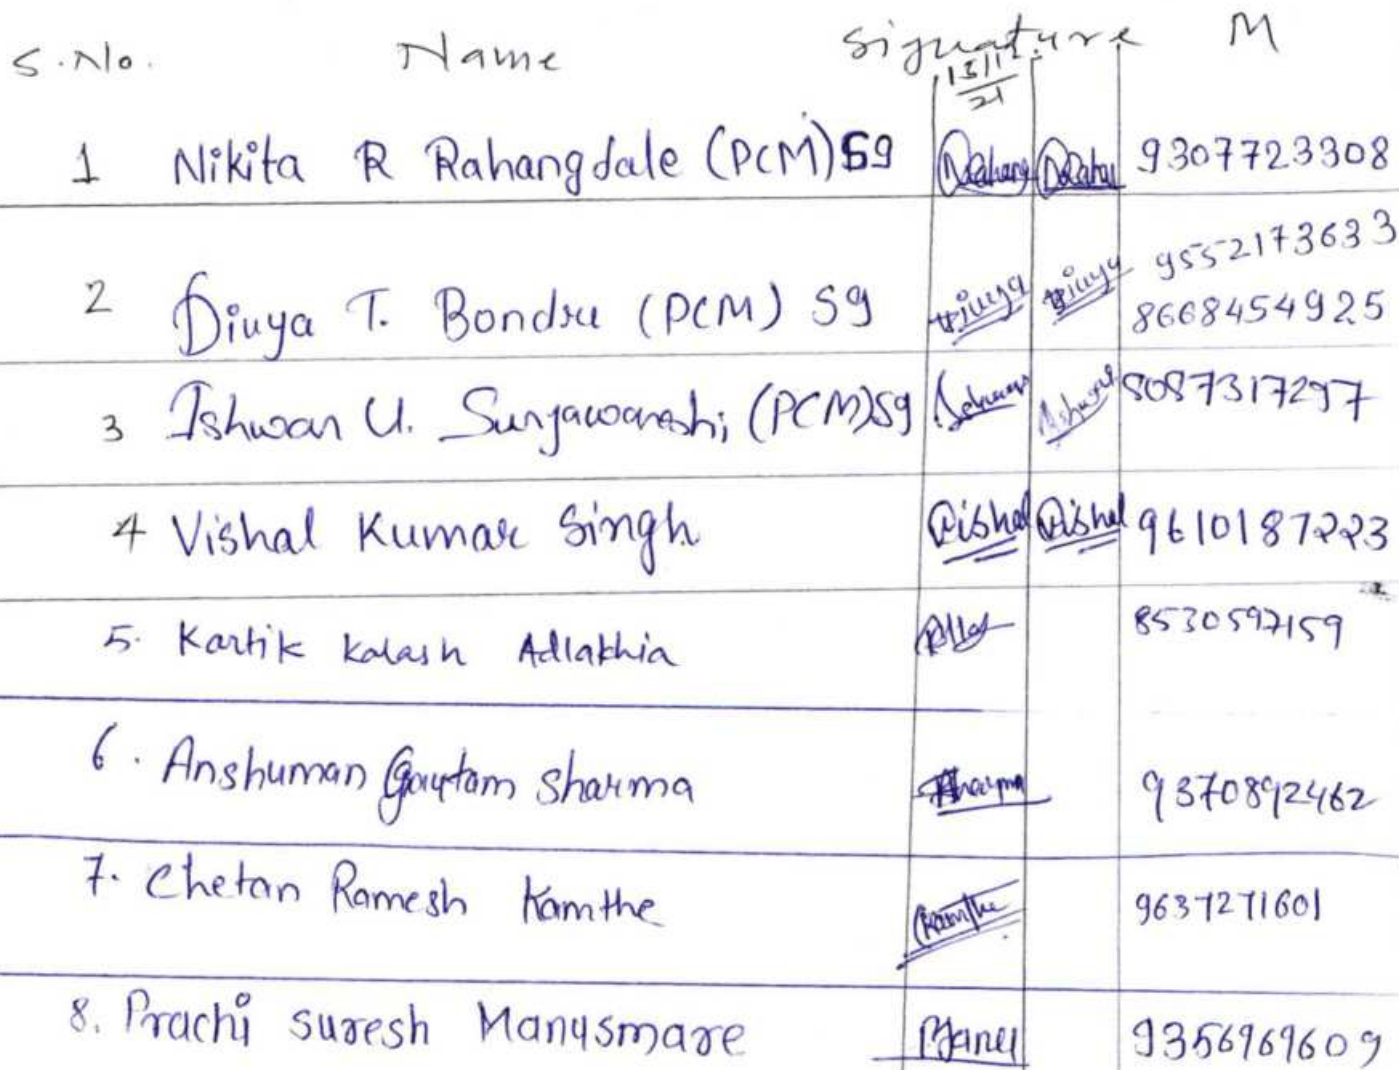 S.No. Name Signature M
13/12
21
1 Nikita R Rahangdale (PCM) 59 9307723308
9552173633
2 Divya T. Bondre (PCM) 59 Divya Divya 8668454925
3 Ishwar U. Suryawanshi (PCM) 59 8087317297
4 Vishal Kumar Singh Vishal Vishal 9610187223
5. Kartik Kalash Adlakhia 8530597159
6. Anshuman Gautam Sharma 9370892462
7. Chetan Ramesh Kamthe Kamthe 9637271601
8. Prachi suresh Manusmare 9356969609